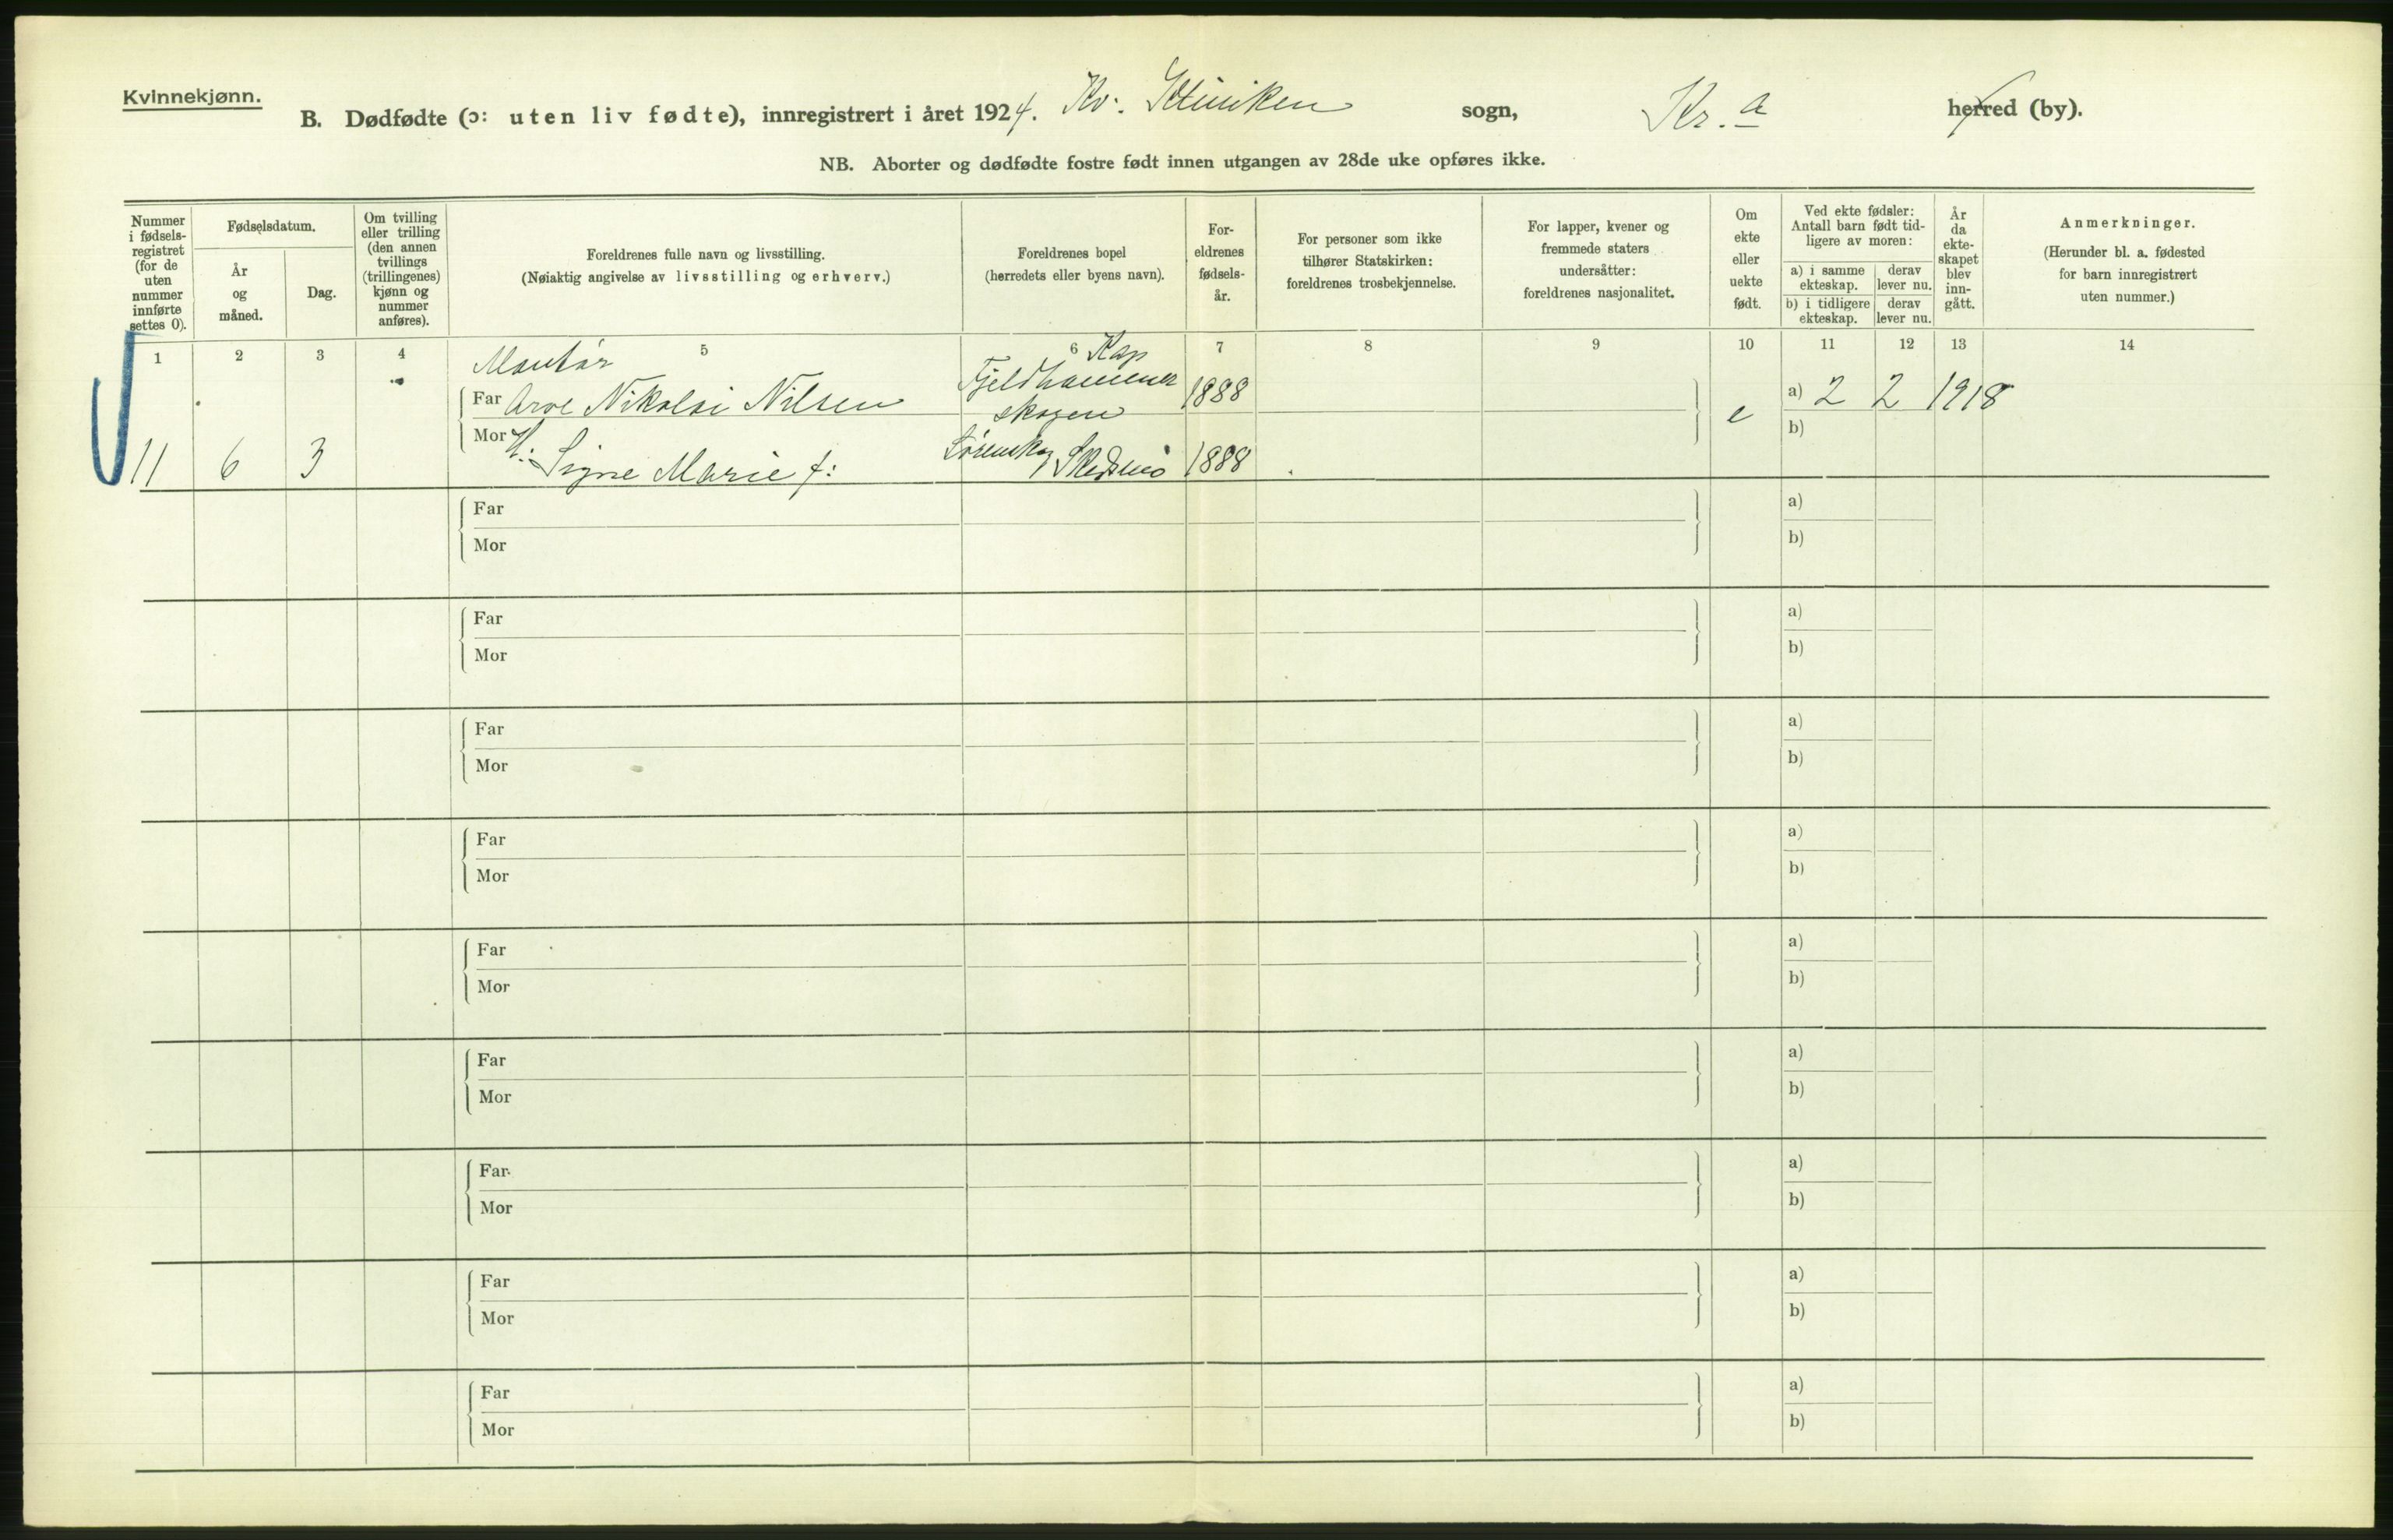 Kvinnekjønn.
B. Dødfødte (ɔ: uten liv fødte), innregistrert i året 1924. Kv. Kliniken sogn, Kr.a herred (by).
NB. Aborter og dødfødte fostre født innen utgangen av 28de uke opføres ikke.
Nummer i fødsels-registret (for de uten nummer innførte settes 0).
Fødselsdatum.
År og måned.
Dag.
Om tvilling eller trilling (den annen tvillings (trillingenes) kjønn og nummer anføres).
Foreldrenes fulle navn og livsstilling.
(Nøiaktig angivelse av livsstilling og erhverv.)
Foreldrenes bopel
(herredets eller byens navn).
For-eldrenes fødsels-år.
For personer som ikke tilhører Statskirken: foreldrenes trosbekjennelse.
For lapper, kvener og fremmede staters undersåtter: foreldrenes nasjonalitet.
Om ekte eller uekte født.
Ved ekte fødsler: Antall barn født tid-ligere av moren:
a) i samme ekteskap.
derav lever nu.
b) i tidligere ekteskap.
derav lever nu.
År da ekte-skapet blev inn-gått.
Anmerkninger.
(Herunder bl. a. fødested for barn innregistrert uten nummer.)
1 2 3 4 5 6 7 8 9 10 11 12 13 14
Montør
Far Arve Nikolai Nilsen
Fjeldhammer
skogen
1888
e
a) 2 2 1918
b)
11 6 3
Mor H. Signe Marie f:
Skedsmo 1888
Far
Mor
a)
b)
Far
Mor
a)
b)
Far
Mor
a)
b)
Far
Mor
a)
b)
Far
Mor
a)
b)
Far
Mor
a)
b)
Far
Mor
a)
b)
Far
Mor
a)
b)
Far
Mor
a)
b)